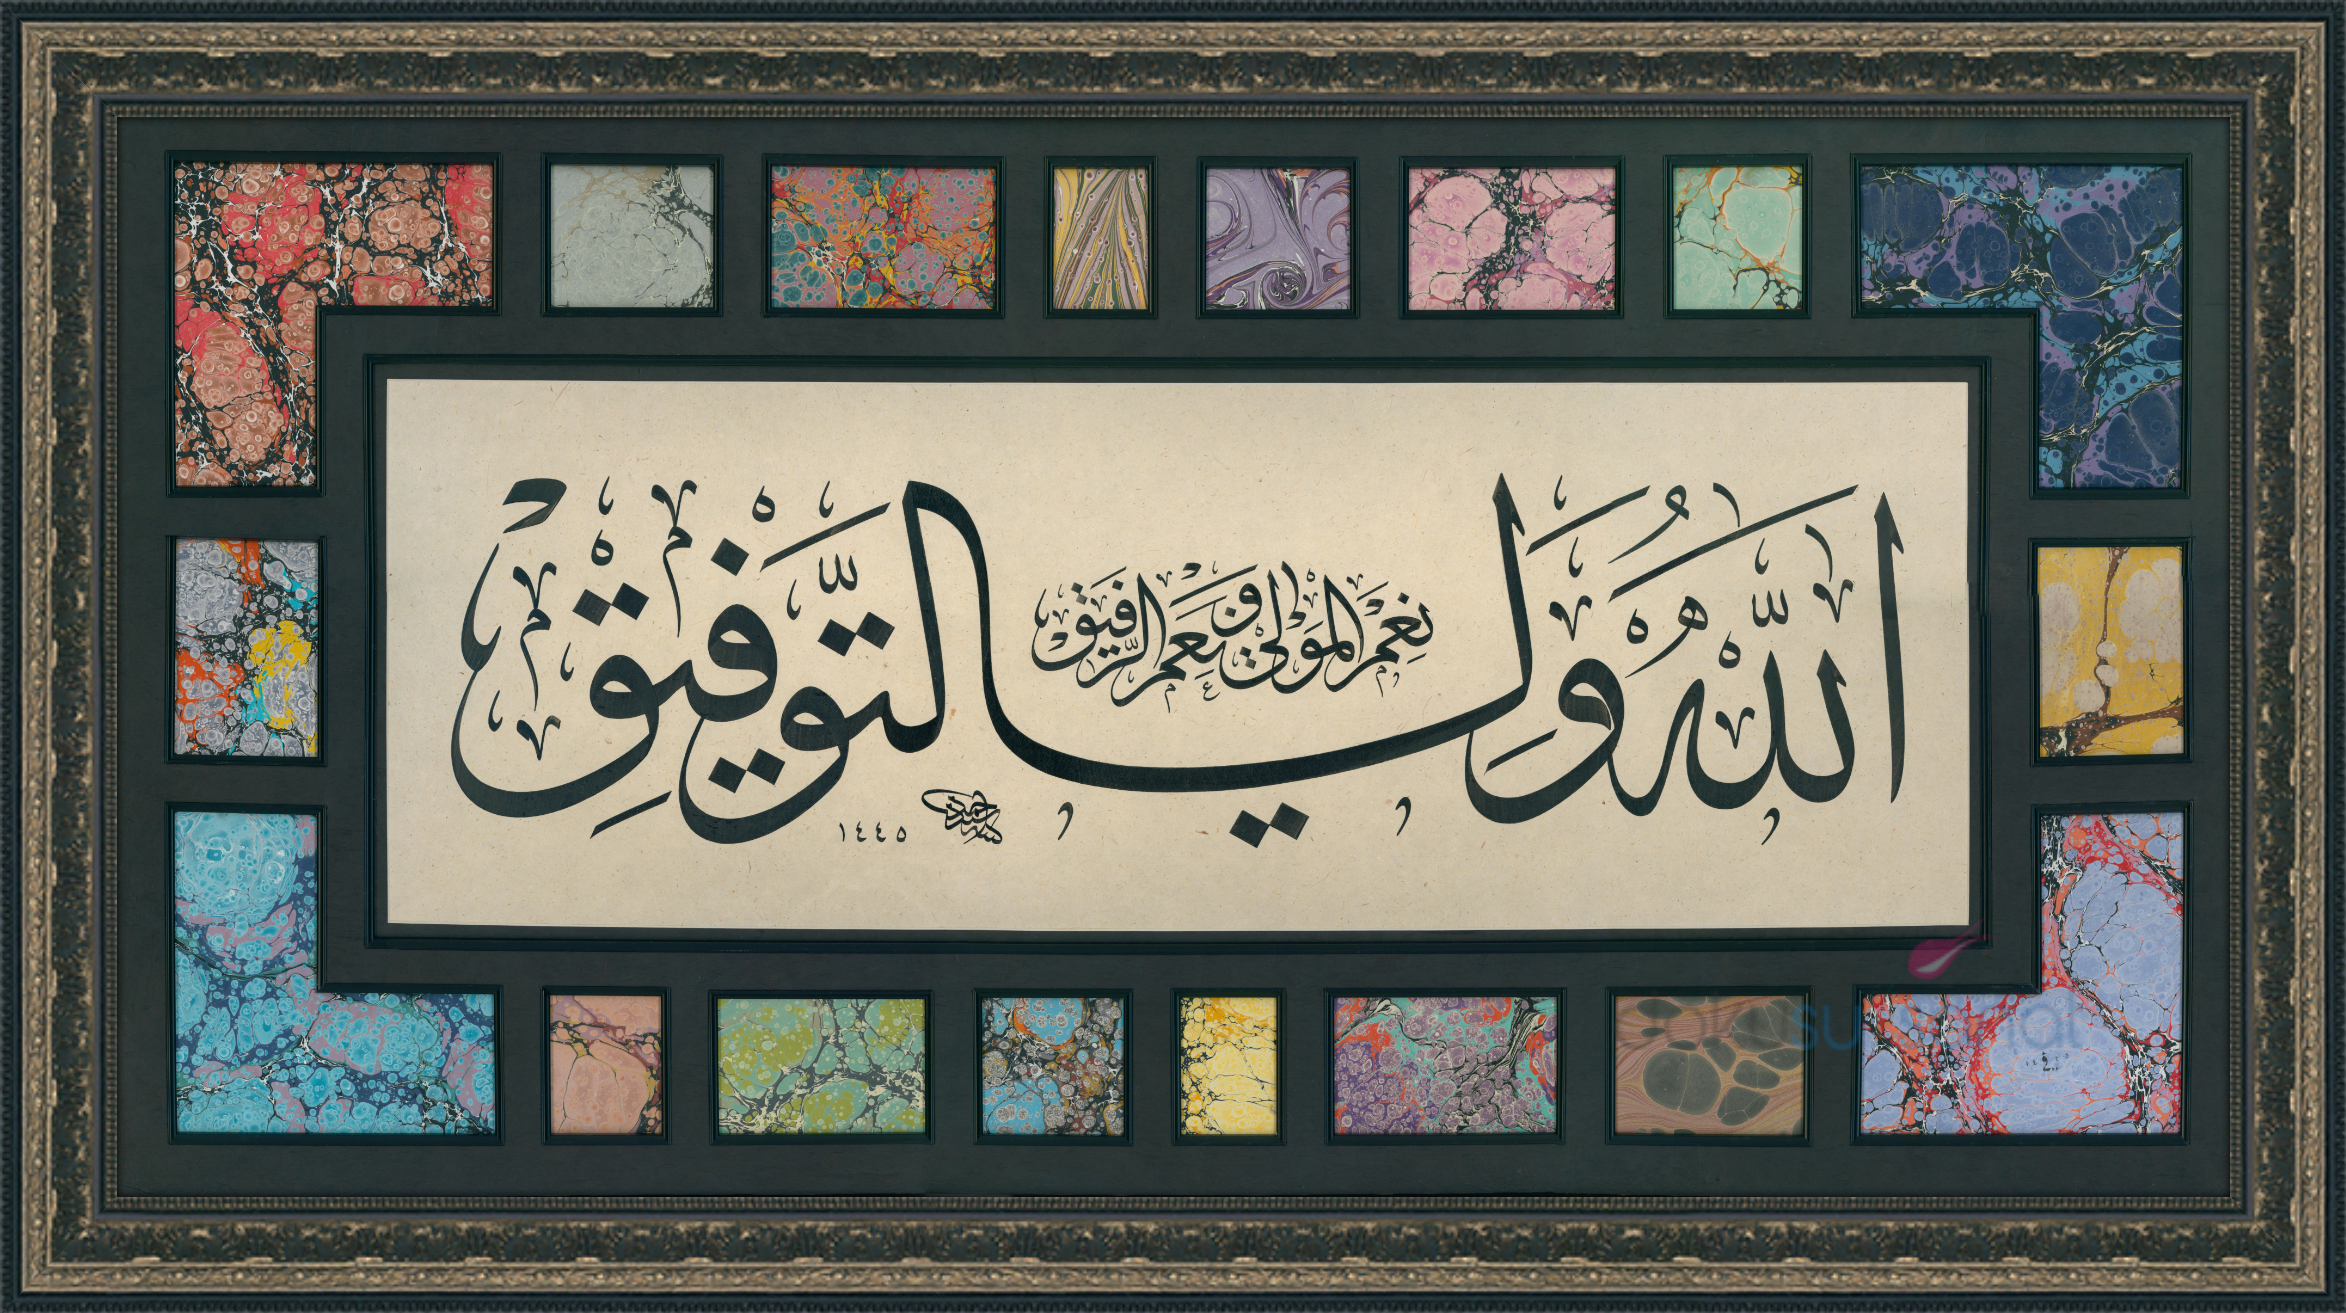 اللّٰهُ وَلِيُّ التَّوْفِيقِ
نِعْمَ الْمَوْلَى وَنِعْمَ الرَّفِيقُ
١٤٤٥